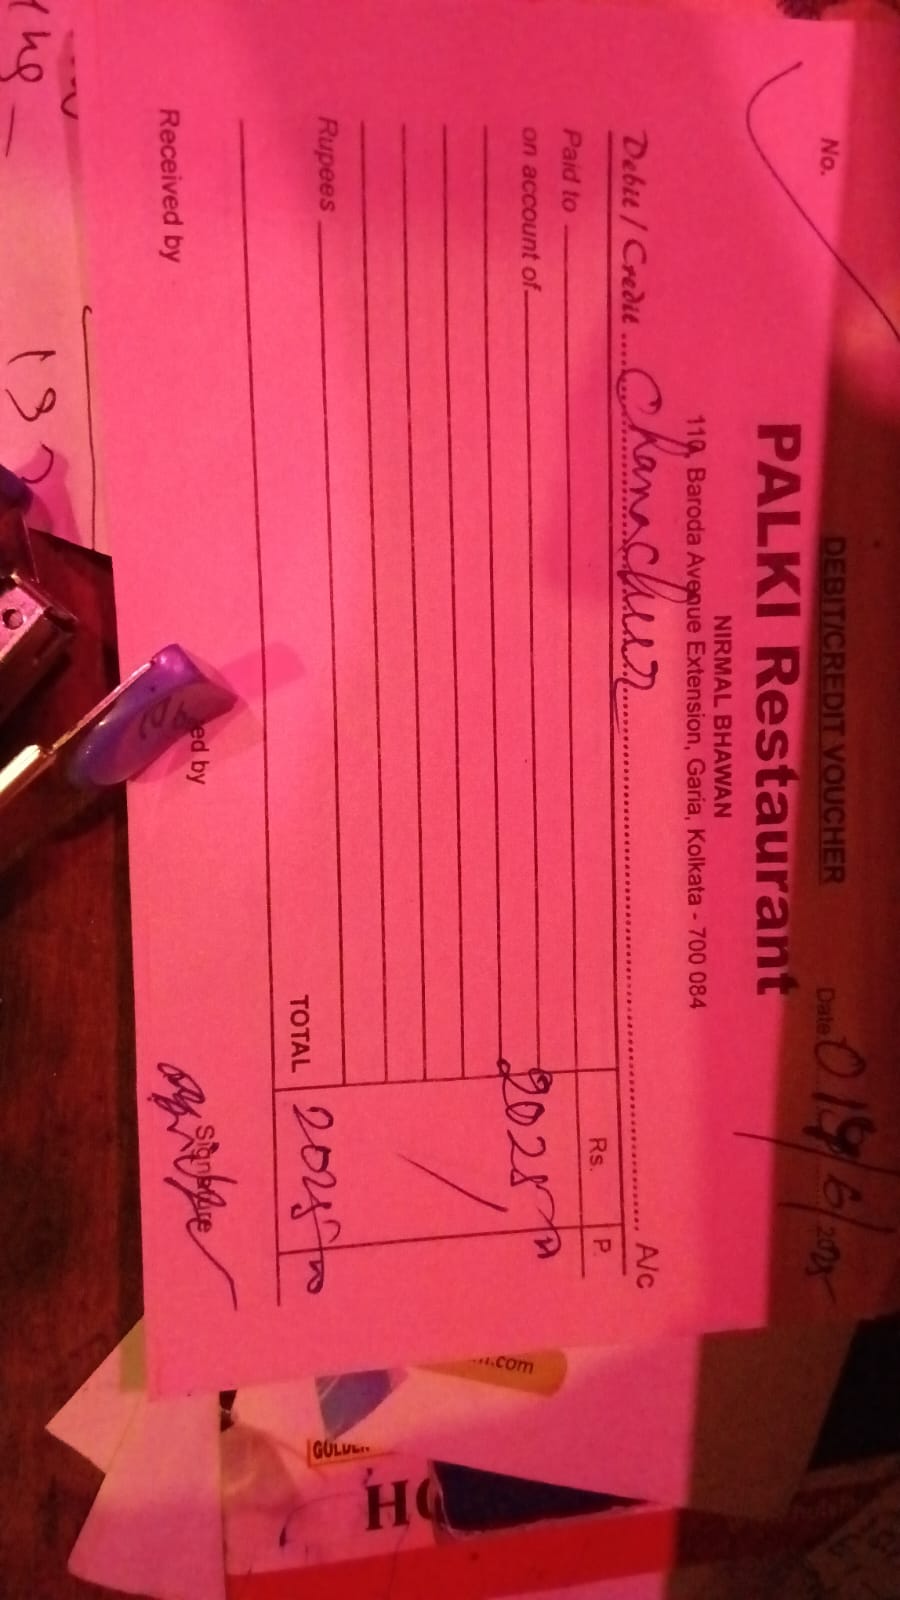 DEBIT/CREDIT VOUCHER
No.
Date 2025
PALKI Restaurant
NIRMAL BHAWAN
119, Baroda Avenue Extension, Garia, Kolkata - 700 084
Debit / Credit Chanachur A/c
Paid to
Rs. P.
on account of
2025
Rupees
TOTAL 2025
Received by
ed by
Signature
.com